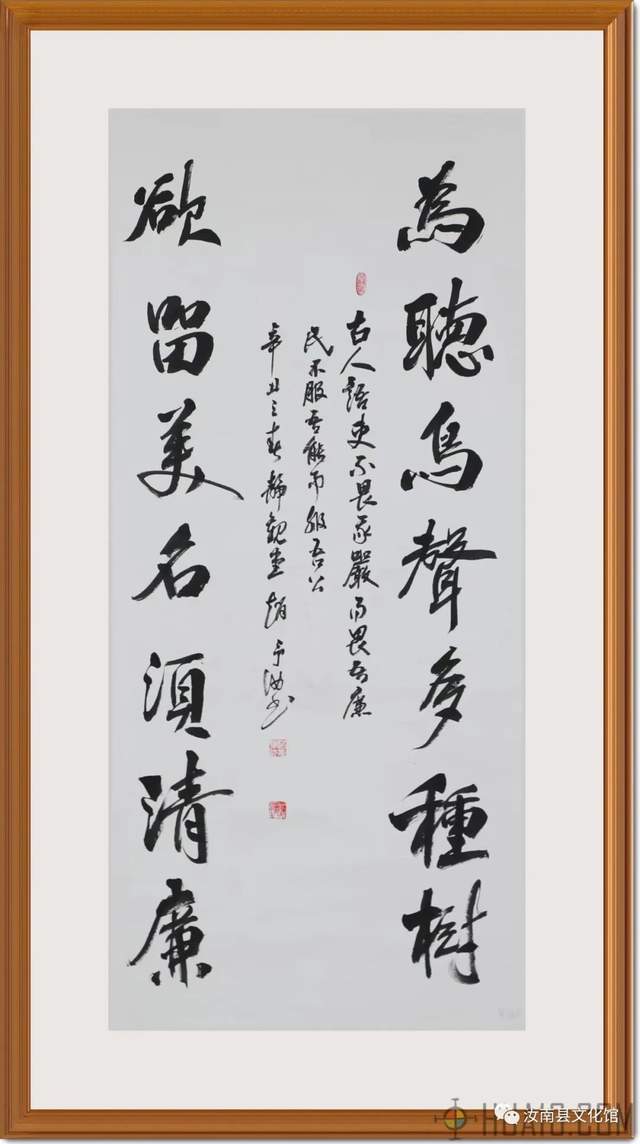 為聽鳥聲多種樹
古人語吏不畏我嚴而畏吾廉
民不服吾能而服吾公
辛丑之春靜觀堂趙
欲留美名須清廉
汝南县文化馆